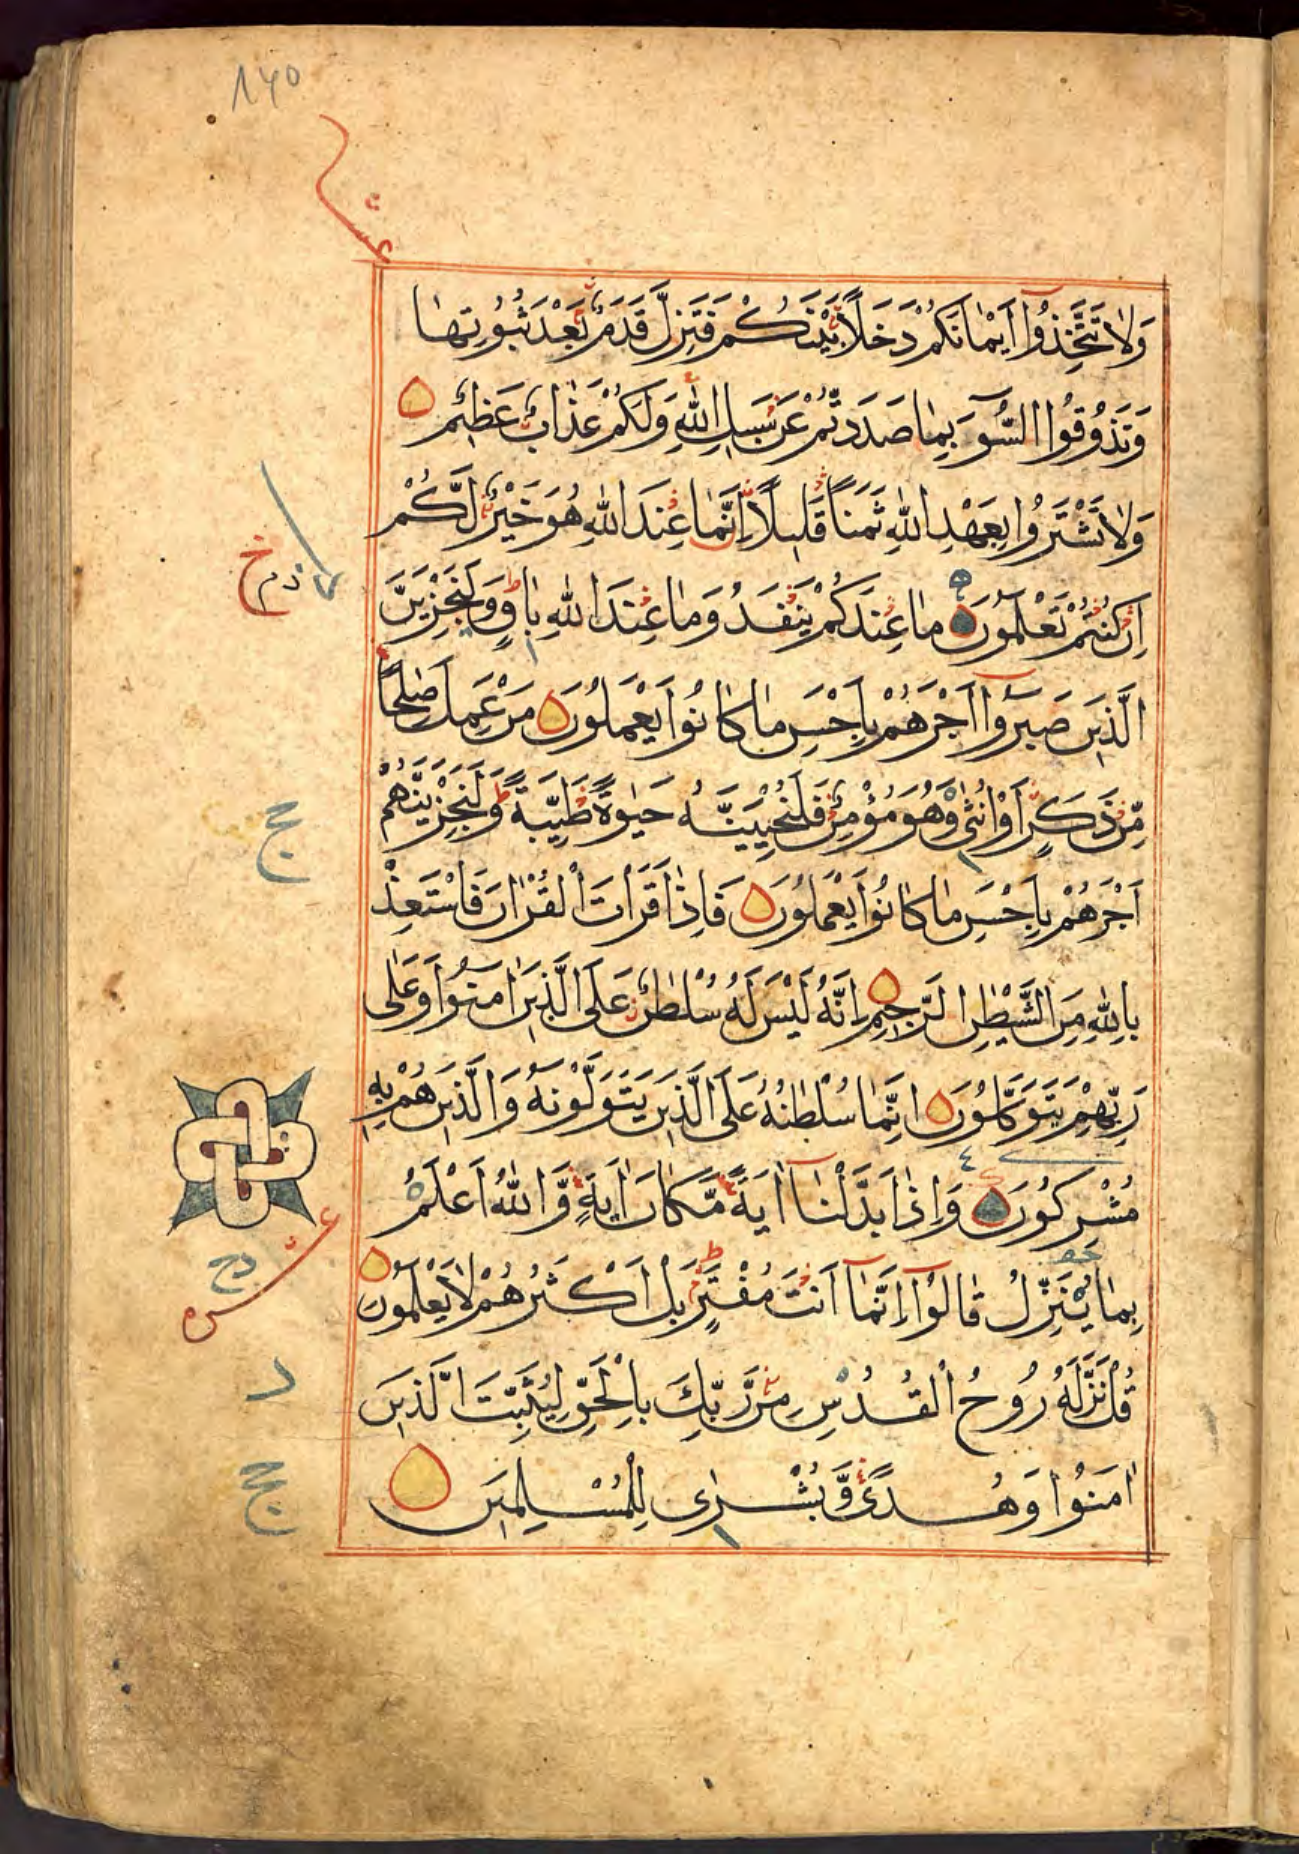 ١٤٥
عشر
وَلَا تَتَّخِذُوا أَيْمَانَكُمْ دَخَلًا بَيْنَكُمْ فَتَزِلَّ قَدَمٌ بَعْدَ ثُبُوتِهَا
وَتَذُوقُوا السُّوءَ بِمَا صَدَدتُّمْ عَن سَبِيلِ اللَّهِ وَلَكُمْ عَذَابٌ عَظِيمٌ
وَلَا تَشْتَرُوا بِعَهْدِ اللَّهِ ثَمَنًا قَلِيلًا إِنَّمَا عِندَ اللَّهِ هُوَ خَيْرٌ لَّكُمْ
إِن كُنتُمْ تَعْلَمُونَ مَا عِندَكُمْ يَنفَدُ وَمَا عِندَ اللَّهِ بَاقٍ وَلَنَجْزِيَنَّ
الَّذِينَ صَبَرُوا أَجْرَهُمْ بِأَحْسَنِ مَا كَانُوا يَعْمَلُونَ مَنْ عَمِلَ صَالِحًا
مِّن ذَكَرٍ أَوْ أُنثَى وَهُوَ مُؤْمِنٌ فَلَنُحْيِيَنَّهُ حَيٰوةً طَيِّبَةً وَلَنَجْزِيَنَّهُمْ
أَجْرَهُمْ بِأَحْسَنِ مَا كَانُوا يَعْمَلُونَ فَإِذَا قَرَأْتَ الْقُرْآنَ فَاسْتَعِذْ
بِاللَّهِ مِنَ الشَّيْطٰنِ الرَّجِيمِ إِنَّهُ لَيْسَ لَهُ سُلْطٰنٌ عَلَى الَّذِينَ آمَنُوا وَعَلَى
رَبِّهِمْ يَتَوَكَّلُونَ إِنَّمَا سُلْطٰنُهُ عَلَى الَّذِينَ يَتَوَلَّوْنَهُ وَالَّذِينَ هُمْ بِهِ
مُشْرِكُونَ وَإِذَا بَدَّلْنَا آيَةً مَّكَانَ آيَةٍ وَاللَّهُ أَعْلَمُ
بِمَا يُنَزِّلُ قَالُوا إِنَّمَا أَنتَ مُفْتَرٍ بَلْ أَكْثَرُهُمْ لَا يَعْلَمُونَ
قُلْ نَزَّلَهُ رُوحُ الْقُدُسِ مِن رَّبِّكَ بِالْحَقِّ لِيُثَبِّتَ الَّذِينَ
آمَنُوا وَهُدًى وَبُشْرٰى لِلْمُسْلِمِينَ